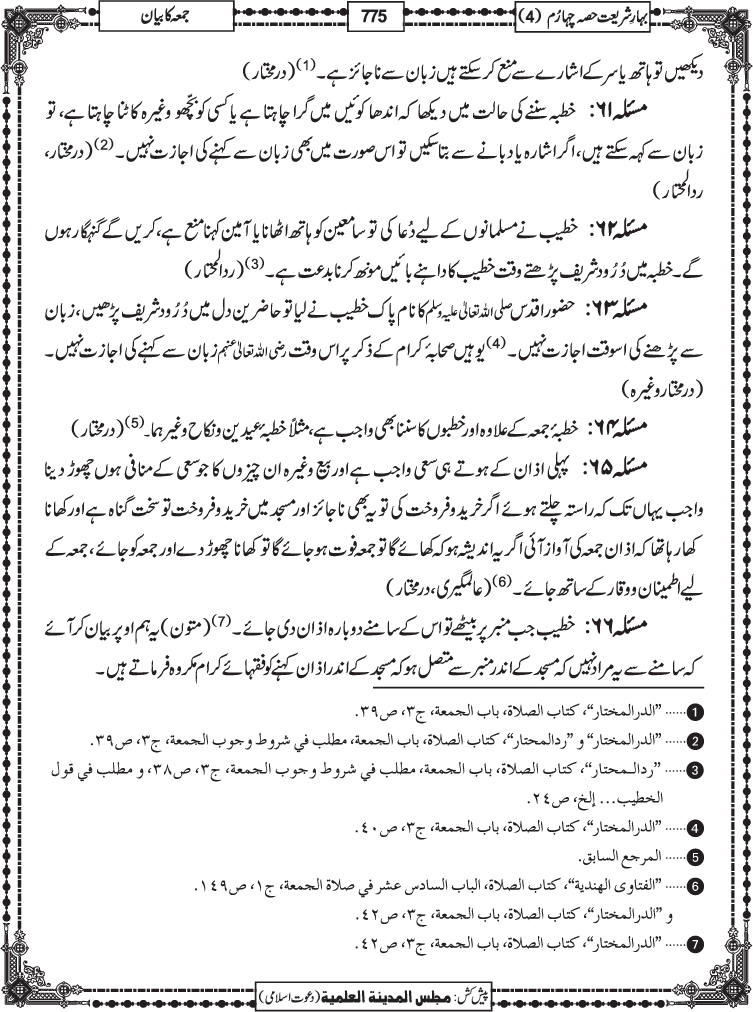 بہارِ شریعت حصہ چہارم (4)
775
جمعہ کا بیان
دیکھیں تو ہاتھ یا سر کے اشارے سے منع کر سکتے ہیں زبان سے ناجائز ہے۔(1) (درمختار)
مسئلہ ۶۱: خطبہ سننے کی حالت میں دیکھا کہ اندھا کوئیں میں گرا چاہتا ہے یا کسی کو بچّھو وغیرہ کاٹنا چاہتا ہے، تو
زبان سے کہہ سکتے ہیں، اگر اشارہ یا دبانے سے بتا سکیں تو اس صورت میں بھی زبان سے کہنے کی اجازت نہیں۔(2) (درمختار،
ردالمحتار)
مسئلہ ۶۲: خطیب نے مسلمانوں کے لیے دُعا کی تو سامعین کو ہاتھ اٹھانا یا آمین کہنا منع ہے، کریں گے گنہگار ہوں
گے۔ خطبہ میں دُرُود شریف پڑھتے وقت خطیب کا داہنے بائیں مونھ کرنا بدعت ہے۔(3) (ردالمحتار)
مسئلہ ۶۳: حضور اقدس صلی اللہ تعالیٰ علیہ وسلم کا نام پاک خطیب نے لیا تو حاضرین دل میں دُرُود شریف پڑھیں، زبان
سے پڑھنے کی اسوقت اجازت نہیں۔(4) یوہیں صحابۂ کرام کے ذکر پر اس وقت رضی اللہ تعالیٰ عنہم زبان سے کہنے کی اجازت نہیں۔
(درمختار وغیرہ)
مسئلہ ۶۴: خطبۂ جمعہ کے علاوہ اور خطبوں کا سننا بھی واجب ہے، مثلاً خطبۂ عیدین و نکاح وغیرہما۔(5) (درمختار)
مسئلہ ۶۵: پہلی اذان کے ہوتے ہی سعی واجب ہے اور بیع وغیرہ ان چیزوں کا جو سعی کے منافی ہوں چھوڑ دینا
واجب یہاں تک کہ راستہ چلتے ہوئے اگر خرید و فروخت کی تو یہ بھی ناجائز اور مسجد میں خرید و فروخت تو سخت گناہ ہے اور کھانا
کھا رہا تھا کہ اذان جمعہ کی آواز آئی اگر یہ اندیشہ ہو کہ کھائے گا تو جمعہ فوت ہو جائے گا تو کھانا چھوڑ دے اور جمعہ کو جائے، جمعہ کے
لیے اطمینان و وقار کے ساتھ جائے۔(6) (عالمگیری، درمختار)
مسئلہ ۶۶: خطیب جب منبر پر بیٹھے تو اس کے سامنے دوبارہ اذان دی جائے۔(7) (متون) یہ ہم اوپر بیان کر آئے
کہ سامنے سے یہ مراد نہیں کہ مسجد کے اندر منبر سے متصل ہو کہ مسجد کے اندر اذان کہنے کو فقہائے کرام مکروہ فرماتے ہیں۔
1 ...... "الدرالمختار"، کتاب الصلاة، باب الجمعة، ج٣، ص٣٩.
2 ...... "الدرالمختار" و "ردالمحتار"، کتاب الصلاة، باب الجمعة، مطلب في شروط وجوب الجمعة، ج٣، ص٣٩.
3 ...... "ردالـمحتار"، کتاب الصلاة، باب الجمعة، مطلب في شروط وجوب الجمعة، ج٣، ص٣٨، و مطلب في قول
الخطيب... إلخ، ص٢٤.
4 ...... "الدرالمختار"، کتاب الصلاة، باب الجمعة، ج٣، ص٤٠.
5 ...... المرجع السابق.
6 ...... "الفتاوى الهندية"، کتاب الصلاة، الباب السادس عشر في صلاة الجمعة، ج١، ص١٤٩.
و "الدرالمختار"، کتاب الصلاة، باب الجمعة، ج٣، ص٤٢.
7 ...... "الدرالمختار"، کتاب الصلاة، باب الجمعة، ج٣، ص٤٢.
پیش کش: مجلس المدینة العلمیة (دعوت اسلامی)